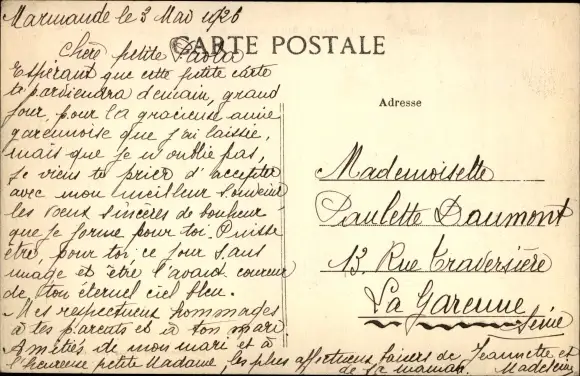 Marmande le 3 Mai 1926
CARTE POSTALE
Chère petite Paola
Espérant que cette petite carte
te parviendra demain, grand
jour, pour la gracieuse amie
garennoise que j'ai laissée,
mais que je n'oublie pas,
je viens te prier d'accepter
avec mon meilleur souvenir
les voeux sincères de bonheur
que je forme pour toi. Puisse
être, pour toi, ce jour sans
nuage et être l'avant coureur
de ton éternel ciel bleu.
Mes respectueux hommages
à tes parents et à ton mari
Amitiés de mon mari et à
l'heureuse petite Madame, les plus affectueux baisers de Jeannette et
de sa maman. Madeleine
Adresse
Mademoiselle
Paulette Daumont
13 Rue Traversière
La Garenne
Seine